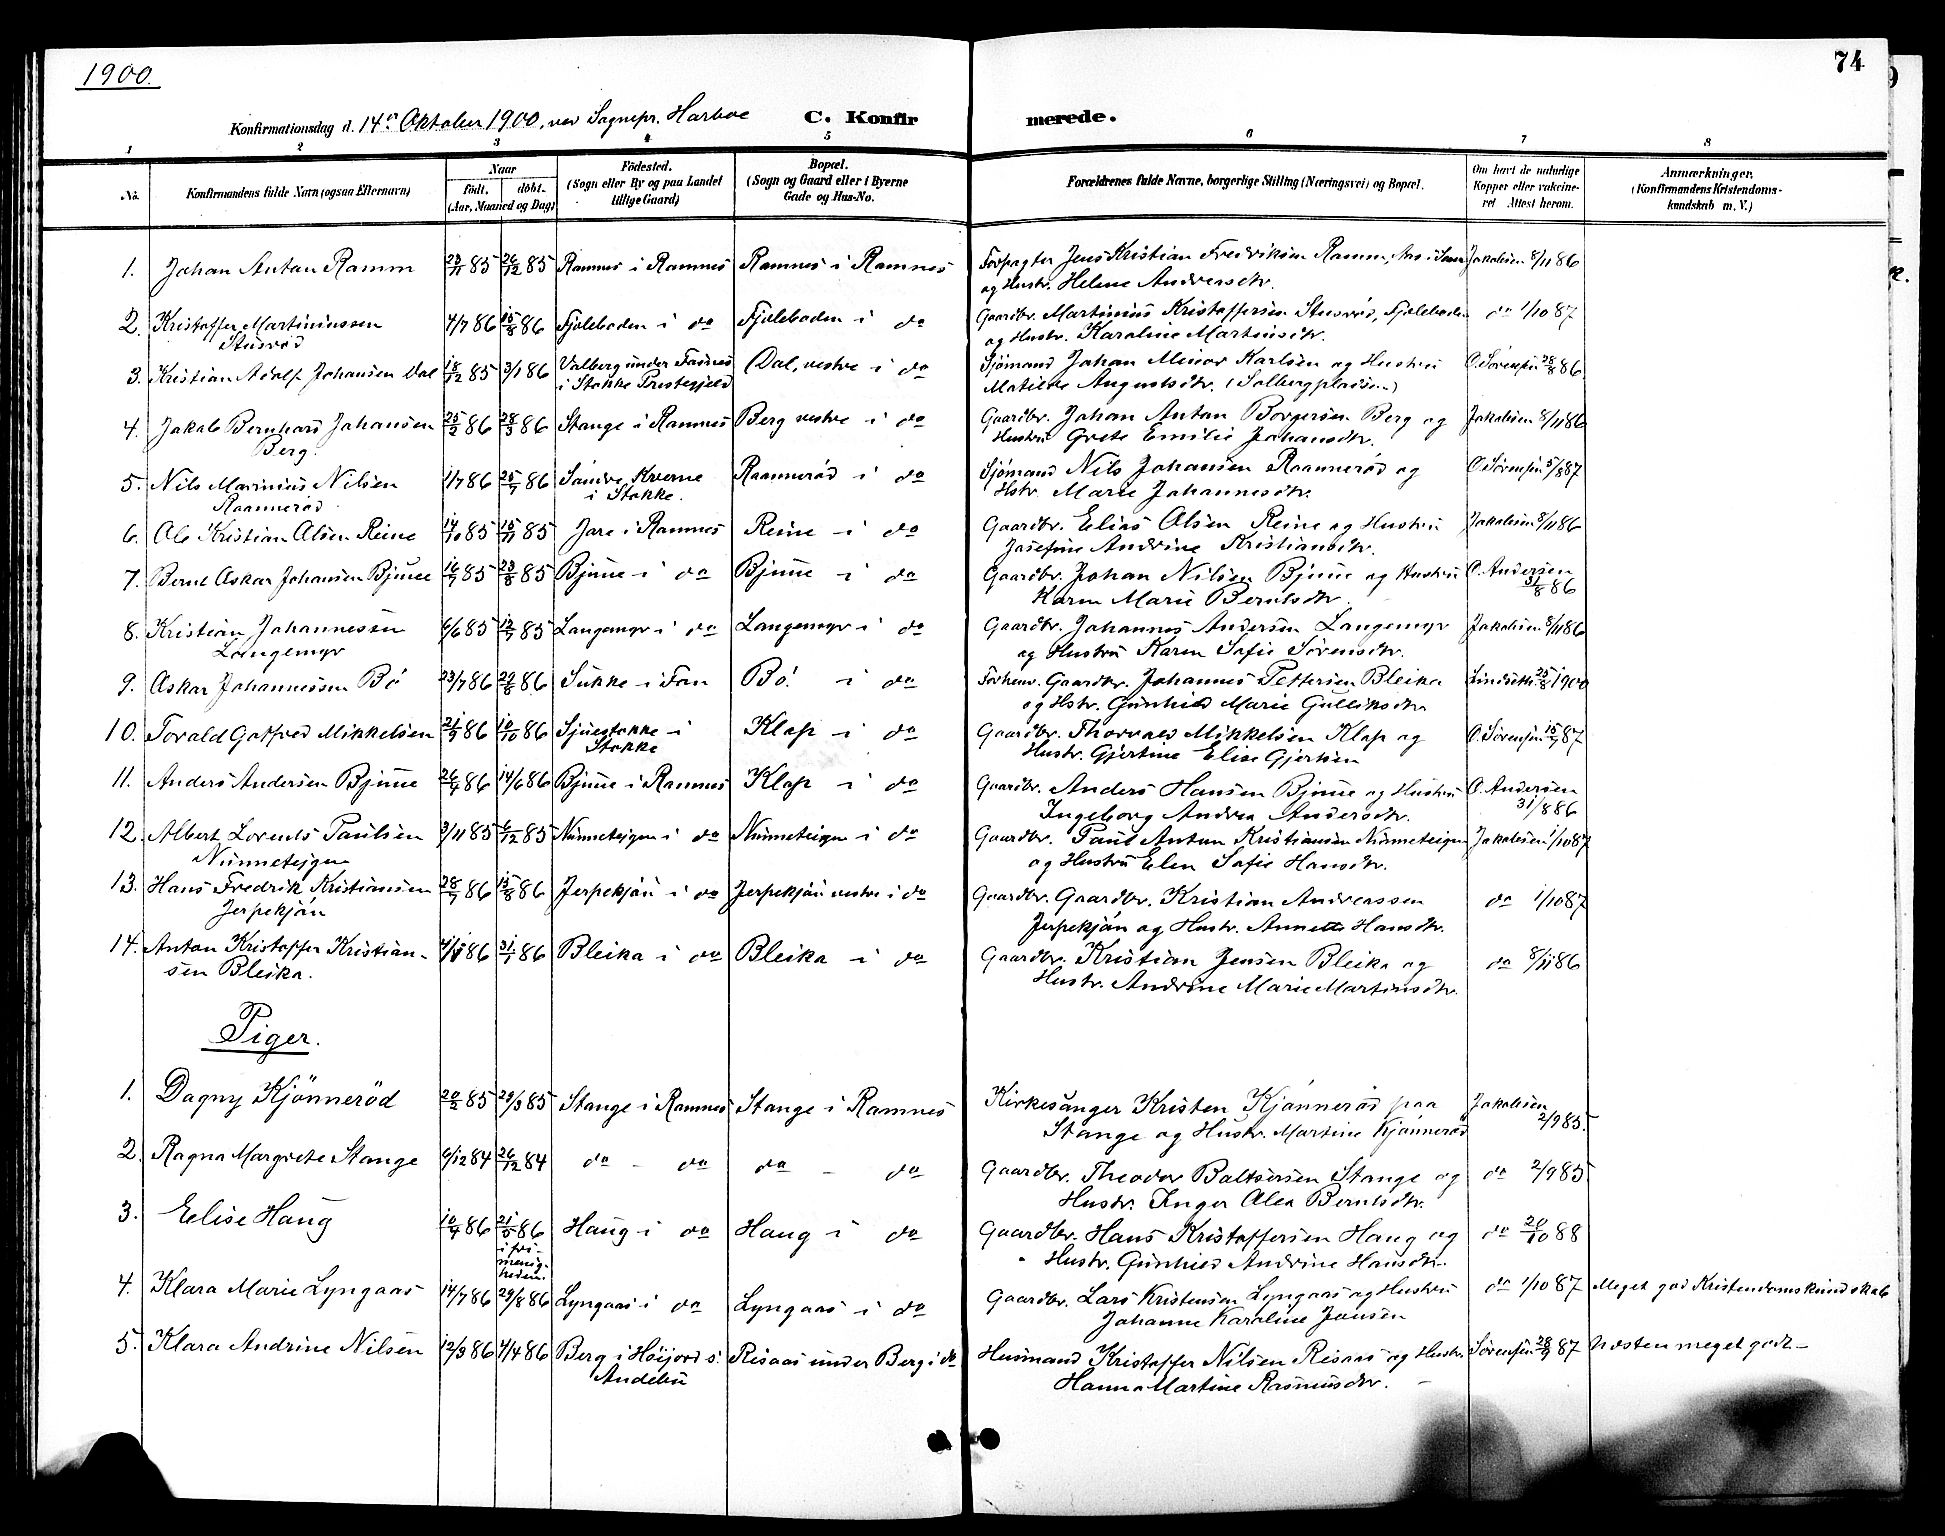 1900.
74
Konfirmationsdag d. 14de Oktober 1900, ved Sognepr. Harboe C. Konfirmerede.
1 2 3 4 5 6 7 8
No. Konfirmandens fulde Navn (ogsaa Efternavn) Naar födt. döbt. (Aar, Maaned og Dag) Födested. (Sogn eller By og paa Landet tillige Gaard) Bopæl. (Sogn og Gaard eller i Byerne Gade og Hus-No. Forældrenes fulde Navne, borgerlige Stilling (Næringsvei) og Bopæl. Om havt de naturlige Kopper eller vakcineret Attest herom. Anmærkninger. (Konfirmandens Kristendomskundskab m. V.)
1. Johan Anton Ramm 23/11 85 26/12 85 Ramnes i Ramnes Ramnes i Ramnes Forpagter Jens Kristian Fredriksen Ramm, Jakobsen 8/11 86
og Hustr. Helene Andersdtr.
2. Kristoffer Martiniussen 4/7 86 15/8 86 Fjæleboden i do Fjæleboden i do Gaardbr. Martinius Kristoffersen Stusröd, Fjæleboden do 1/10 87
Stusröd og Hustr. Karoline Martinsdtr.
3. Kristian Adolf Johansen Dal 18/12 85 3/1 86 Valberg under Fosnes Dal, vestre i do Sjömand Johan Minor Karlsen og Hustru O. Sörensen 28/8 86
i Stokke Prestegjeld Matilde Augustsdtr. (Solbergpladsen)
4. Jakob Bernhard Johansen 25/2 86 28/3 86 Stange i Ramnes Berg vestre i do Gaardbr. Johan Anton Borgersen Berg og Jakobsen 8/11 86
Berg. Hustru Grete Emilie Johansdtr.
5. Nils Marinius Nilsen 1/7 86 25/7 86 Söndre Kverne Raannerød i do Sjömand Nils Johansen Raannerød og O. Sörensen 5/8 87
Raannerød i Stokke. Hstr. Marie Johannesdtr.
6. Ole Kristian Olsen Reine 14/10 85 15/11 85 Jare i Ramnes Reine i do Gaardbr. Elias Olsen Reine og Hustru Jakobsen 8/11 86
Josefine Andrine Kristiansdtr.
7. Bernt Oskar Johansen Bjune 16/7 85 23/8 85 Bjune i do Bjune i do Gaardbr. Johan Nilsen Bjune og Hustru O. Andersen
Karen Marie Berntsdtr. 31/8 86
8. Kristian Johannessen 6/6 85 12/7 85 Langemyr i do Langemyr i do Gaardbr. Johannes Andersen Langemyr Jakobsen 8/11 86
Langemyr og Hustru Karen Sofie Sörensdtr.
9. Oskar Johannessen Bö 23/7 86 29/8 86 Sukke i Fon Bö i do Forhenv. Gaardbr. Johannes Pettersen Bleika Lindseth 25/8 1900
og Hstr. Gunhild Marie Gulliksdtr
10. Torald Gotfred Mikkelsen 21/9 86 10/10 86 Sjuestokke i Klop i do Gaardbr. Thorvald Mikkelsen Klop og O. Sörensen 15/7 87
Stokke Hustr. Gjertine Elise Gjertsen
11. Anders Andersen Bjune 26/4 86 14/6 86 Bjune i Ramnes Klop i do Gaardbr. Anders Hansen Bjune og Hustru O. Andersen
Ingeborg Andrea Andersdtr. 31/8 86
12. Albert Lorents Paulsen 3/11 85 6/12 85 Nunneteigen i do Nunneteigen i do Gaardbr. Paul Anton Kristiansen Nunneteigen Jakobsen 1/10 87
Nunneteigen og Hustru Elen Sofie Hansdtr.
13. Hans Fredrik Kristiansen 28/7 86 15/8 86 Jerpekjön i do Jerpekjön vestre i do Gaardbr. Gaardbr. Kristian Andreassen do 1/10 87
Jerpekjön Jerpekjön og Hustr. Annette Hansdtr.
14. Anton Kristoffer Kristian- 86 31/1 86 Bleika i do Bleika i do Gaardbr. Kristian Jensen Bleika og do 8/11 86
sen Bleika. Hustr. Andrine Marie Martinsdtr.
Piger.
1. Dagny Kjönneröd 20/2 85 29/3 85 Stange i Ramnes Stange i Ramnes Kirkesanger Kristen Kjönneröd paa Jakobsen
Stange og Hustr. Martine Kjönneröd 2/9 85.
2. Ragna Margrete Stange 6/12 84 26/12 84 do - do do - do Gaardbr. Theodor Baltsersen Stange og do 2/9 85
Hustr. Inger Alea Berntsdtr.
3. Elise Haug 10/4 86 21/5 86 Haug i do Haug i do Gaardbr. Hans Kristoffersen Haug og do 20/10 88
i fri-
menig-
heden. Hustr. Gunhild Andrine Hansdtr.
4. Klara Marie Lyngaas 14/7 86 29/8 86 Lyngaas i do Lyngaas i do Gaardbr. Lars Kristensen Lyngaas og Hustru do 1/10 87 Meget god Kristendomskundskab
Johanne Karoline Jansen
5. Klara Andrine Nilsen 12/3 86 4/4 86 Berg i Höijord s. Risaas under Berg i do Husmand Kristoffer Nilsen Risaas og Hustr. Sörensen 28/9 87 Næsten meget godt
Andebu Hanna Martine Rasmusdtr.